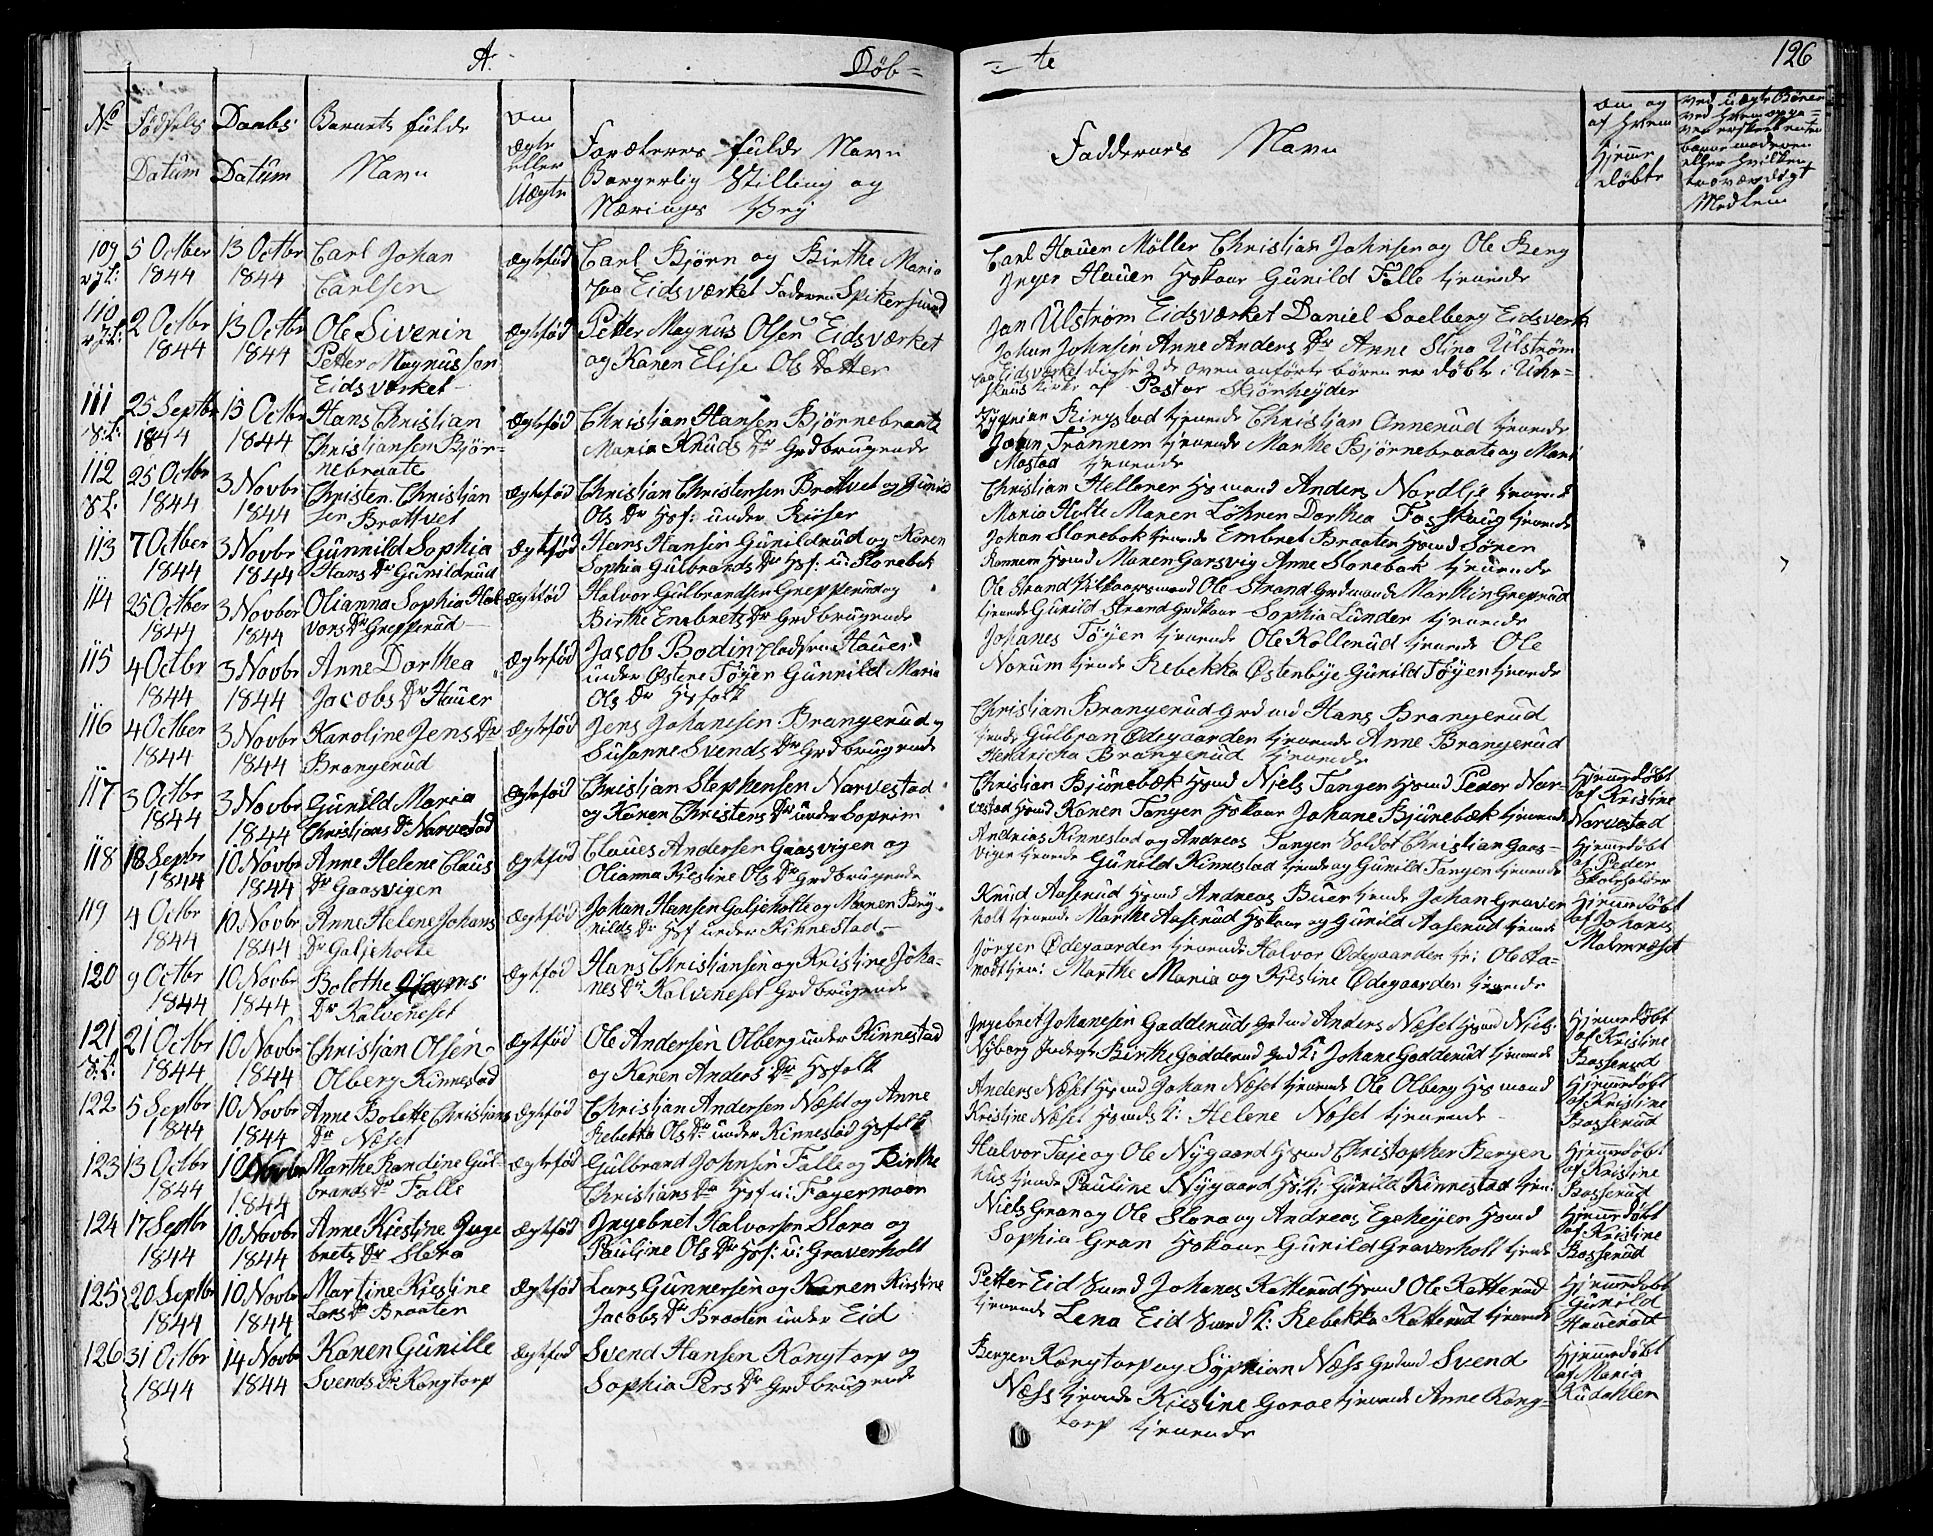 A.
Døb=
=te
126
No
Fødsels
Datum
Daabs
Datum
Barnets fulde
Navn
Om
ægte
eller
Uægte
Foræleres fulde Navn
Borgerlig Stilling og
Nærings Vej
Faddernes Navn
om og
af hvem
hjemme
døbt
109
5 Octber
1844
13 Octbr
1844
Carl Johan
Carlsen
ægtefød
Carl Bjørn og Birthe Maria
paa Eidsværket Faderen Spikersmed
Carl Hauer Møller Christian Johnsen og Ole Berg
Inger Hauer Hskaar Gunild Falle tjenende
110
2 Octbr
1844
13 Octbr
1844
Ole Siverin
Petter Magnussen
Eidsværket
ægtefød
Petter Magnus Olsen Eidsværket
og Karen Elise Ols Datter
Jan Ulstrøm Eidsværket Daniel Soelberg Eidsverk
Johan Johnsen Anne Anders Dr Anne Stina Ulstrøm
paa Eidsværket disse 2de oven anførte børen er døbt i Uhr=
skous Kirke af Pastor Skiønheyder
111
25 Septbr
1844
13 Octbr
1844
Hans Christian
Christiansen Bjør=
nebraate
ægtefød
Christian Hansen Bjørnebraate
Maria Knuds Dr Grdbrugende
Syverian Ringstad tjenende Christian Onnerud tjenende
Johan Trønnem tjenende Marthe Bjørnebraate og Mari
Mostad tjenende
112
25 Octbr
1844
3 Novbr
1844
Christen Christian
sen Brattvet
ægtefød
Christian Christensen Brattvet og Gunild
Ols Dr Hsf: under Riiser
Christian Hellener Hsmand Anders Nordlje tjenend
Maria Holte Maren Løhren Dorthea Fosshaug tjenende
113
7 Octber
1844
3 Novbr
1844
Gunnild Sophia
Hans Dr Gunildrud
ægtefød
Hans Hansen Gunildrud og Karen
Sophia Gulbrands Dr Hsf: u: Slorebek
Johan Slorebok tjenende Embret Braaten Hsmd Søren
Ronnem Hsmd Maren Garsvig Anne Slorebak tjenende
114
25 Octber
1844
3 Novber
1844
Olianna Sophia Hal
vors Dr Grepperud
ægtefød
Halvor Gulbrandsen Grepperud og
Birthe Embrets Dr Grdbrugende
Ole Strand Kirkaarsmand Ole Strand Grdmand Marthin Greprud
tjenende Gunild Strand Grdkaar Sophia Lunder tjenende
115
4 Octbr
1844
3 Novbr
1844
Anne Dorthea
Jacobs Dr Hauer
ægtefød
Jacob Bodin Pladsen Hauer
under Østere Tøyen Gunnild Maria
Ols Dr Hsfolk
Johanes Tøyen tjenende Ole Kollerud tjenende Ole
Norum tjende Rebekka Østenbye Gunild Tøyen tjenende
116
4 Octber
1844
3 Novbr
1844
Karoline Jens Dr
Brangerud
ægtefød
Jens Johanesen Brangerud og
Susanne Svends Dr Grdbrugende
Christian Brangerud Grdmd Hans Brangerud
tjende Gulbran Ødegaarden tjenende Anne Brangerud
Hendricha Brangerud tjenende
117
3 Octbr
1844
3 Novbr
1844
Gunild Maria
Christians Dr Narvestad
ægtefød
Christian Stephensen Narvestad
og Karen Christens Dr under Soprim
Christian Bjunebæk Hsmd Niels Tangen Hsmd Peder Nar=
vestad Hsmd Karen Tangen Hskaar Johane Bjunebæk tjenende
Hjemmdøbt
af Kristine
Narvestad
118
18 Septbr
1844
10 Novbr
1844
Anne Helene Claus
Dr Gaasvigen
ægtefød
Claues Andersen Gaasvigen og
Olianna Kiestine Ols Dr Grdbrugende
Andreas Kinnestad og Andreas Tangen Soldat Christian Gaas=
vigen tjenende Gunild Kinnestad tjende og Gunild Tangen tjenende
Hjemmdøbt
af Peder
Skoleholder
119
4 Octbr
1844
10 Novbr
1844
Anne Helene Johans
Dr Galjeholte
ægtefød
Johan Hansen Galjeholte og Maren Bry=
nilds Dr Hsf under Kinnestad
Knud Aaserud Hsmd Andreas Buer tjende Johan Graver
holt tjenende Marthe Aaserud Hskaar og Gunild Aaserud tjende
Hjemmdøbt
af Johanes
Malmnæset
120
9 Octbr
1844
10 Novbr
1844
Bolethe Hans
Dr Kalveneset
ægtefød
Hans Christiansen og Kristine Joha=
nes Dr Kalveneset Grdbrugende
Jørgen Ødegaarden tjenende Halvor Ødegaarden tj: Ole Aa=
modt tjen: Marthe Maria og Kiestine Ødegaarden tjenende
121
21 Octbr
1844
10 Novbr
1844
Christian Olsen
Olberg Kinnestad
ægtefød
Ole Andersen Olberg under Kinnestad
og Karen Anders Dr Hsfolk
Ingebret Johanesen Gadderud Grdmd Anders Næset Hsmd Niels
Nyborg Inderst Birthe Gadderud Grd K: Johane Gadderud tjenende
Hjemmdøbt
af Kristine
Basserud
122
5 Septbr
1844
10 Novbr
1844
Anne Bolette Christians
Dr Næset
ægtefød
Christian Andersen Næset og Anne
Rebekka Ols Dr under Kinnestad Hsfolk
Anders Næset Hsmd Johan Næset tjenende Ole Olberg Hsmand
Kristine Næset Hsmds K: Helene Næset tjenende
Hjemmdøbt
af Kristine
Basserud
123
13 Octbr
1844
10 Novbr
1844
Marthe Randine Gul
brands Dr Falle
ægtefød
Gulbrand Johnsen Falle og Birthe
Christians Dr Hsf u: Fagermoen
Halvor Taje og Ole Nygaard Hsmd Christopher Bergen
hus tjende Pauline Nygaard Hs:K: Gunild Kinnestad tjen:
Hjemmdøbt
af Kristine
Basserud
124
17 Septbr
1844
10 Novbr
1844
Anne Kiestine Inge
brets Dr Slora
ægtefød
Ingebret Halvorsen Slora og
Pauline Ols Dr Hsf: u: Graverholt
Niels Gran og Ole Slora og Andreas Egeheyen Hsmd
Sophia Gran Hskaar Gunild Graverholt tjende
Hjemmdøbt
af Kristine
Basserud
125
20 Septbr
1844
10 Novbr
1844
Martine Kiestine
Lars Dr Braaten
ægtefød
Lars Gunnersen og Karen Kirstine
Jacobs Dr Braaten under Eid
Petter Eid Svend Johanes Katterud Hsmd Ole Katterud
tjenende Lena Eid Svend K: Rebekka Katterud tjenende
Hjemmdøbt
Gunild
Haverud
126
31 Octbr
1844
14 Novbr
1844
Karen Gunille
Svends Dr Kongtorp
ægtefød
Svend Hansen Kongtorp og
Sophia Pers Dr Grdbrugende
Berger Kongtorp og Syverian Næss Grdmd Svend
Næss tjende Kiestine Goroe tjenende Anne Kong=
torp tjenende
Hjemmdøbt
af Maria
Rudahlen